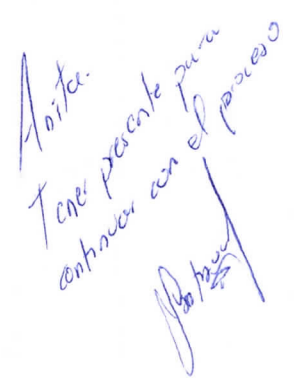 Anita.
Tener presente para
continuar con el proceso